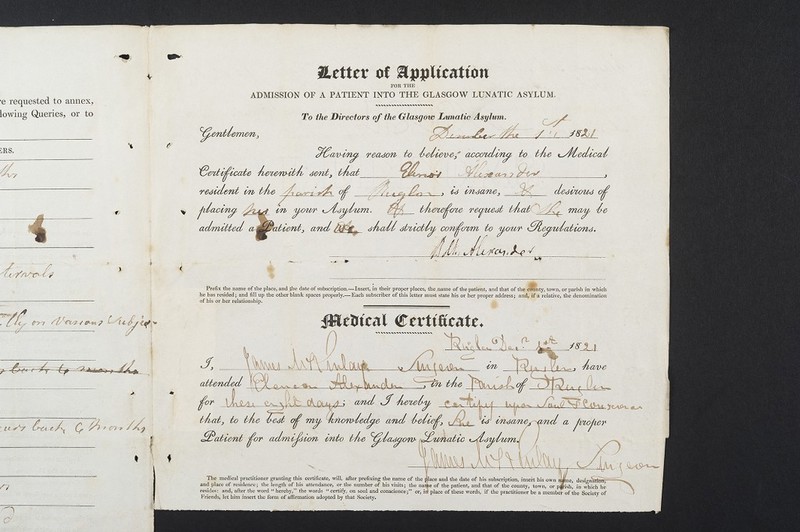 re requested to annex,
lowing Queries, or to
ERS.
Letter of Application
FOR THE
ADMISSION OF A PATIENT INTO THE GLASGOW LUNATIC ASYLUM.
To the Directors of the Glasgow Lunatic Asylum.
Gentlemen, 1st 1821
Having reason to believe, according to the Medical
Certificate herewith sent, that Alexander,
resident in the parish of, is insane, & desirous of
placing her in your Asylum. therefore request that She may be
admitted a Patient, and We shall strictly conform to your Regulations.
Alexander
Prefix the name of the place, and the date of subscription.—Insert, in their proper places, the name of the patient, and that of the county, town, or parish in which
he has resided; and fill up the other blank spaces properly.—Each subscriber of this letter must state his or her proper address; and, if a relative, the denomination
of his or her relationship.
Medical Certificate.
Decr 1st 1821
I, James Surgeon in have
attended Alexander, in the Parish of
for these eight days; and I hereby certify upon Soul & Conscience
that, to the best of my knowledge and belief, She is insane, and a proper
Patient for admission into the Glasgow Lunatic Asylum.
James Surgeon
The medical practitioner granting this certificate, will, after prefixing the name of the place and the date of his subscription, insert his own name, designation,
and place of residence; the length of his attendance, or the number of his visits; the name of the patient, and that of the county, town, or parish, in which he
resides: and, after the word "hereby," the words "certify, on soul and conscience;" or, in place of these words, if the practitioner be a member of the Society of
Friends, let him insert the form of affirmation adopted by that Society.